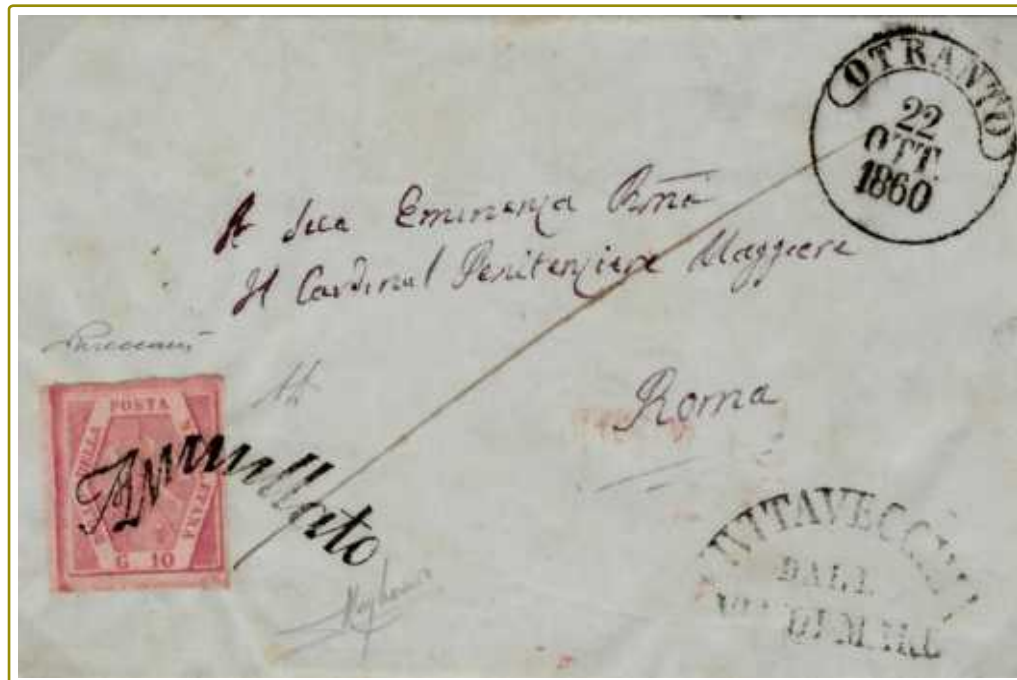 OTRANTO
22
OTT.
1860
A Sua Eminenza Rma
Il Cardinal Penitenziere Maggiore
Roma
POSTA
DELLA
G 10
Annullato
CIVITAVECCHIA
DALL
VIA DI MARE